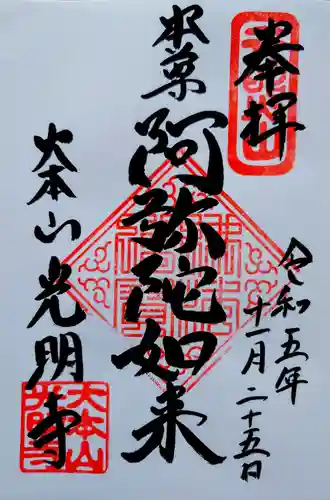 奉拝
令和五年
十一月二十五日
本尊
阿弥陀如来
大本山光明寺
大本山
光明寺